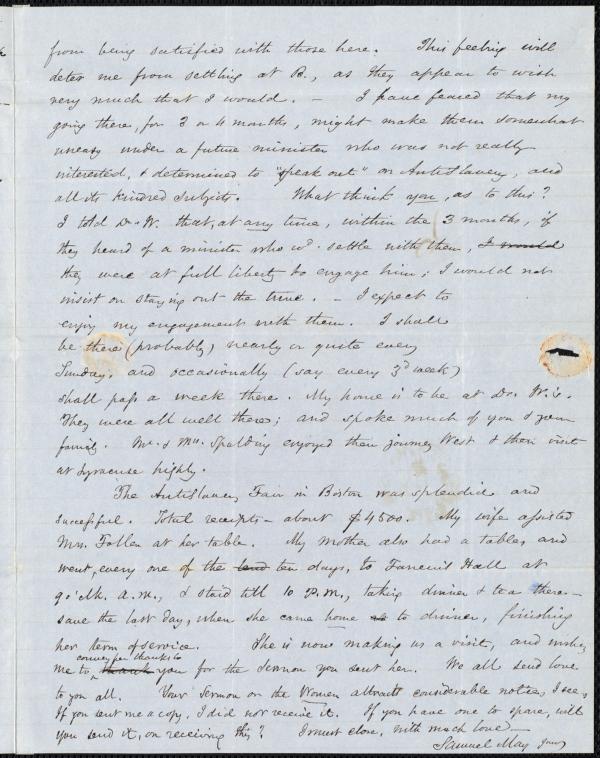 from being satisfied with those here. This feeling will
deter me from settling at B., as they appear to wish
very much that I would. – I have feared that my
going there, for 3 or 4 months, might make them somewhat
uneasy under a future minister who was not really
interested, & determined to "speak out" on Antislavery, and
all its kindred subjects. What think you, as to this?
I told Dr. W. that, at any time, within the 3 months, if
they heard of a minister who wd. settle with them, I would
they were at full liberty to engage him; I would not
insist on staying out the time. – I expect to
enjoy my engagement with them. I shall
be there (probably) nearly or quite every
Sunday, and occasionally (say every 3d week)
shall pass a week there. My home is to be at Dr. W.'s.
They were all well there; and spoke much of you & your
family. Mr. & Mrs. Spalding enjoyed their journey West & their visit
at Syracuse highly.
The Antislavery Fair in Boston was splendid and
successful. Total receipts – about $4500. My wife assisted
Mrs. Follen at her table. My mother also had a table; and
went, every one of the ten days, to Faneuil Hall at
9 o'clk. A.M., & staid till 10 P.M., taking dinner & tea there –
save the last day, when she came home to dinner, finishing
her term of service. She is now making us a visit, and wishes
me to convey her thanks to thank you for the Sermon you sent her. We all send love
to you all. Your Sermon on the Women attracts considerable notice, I see.
If you sent me a copy, I did not receive it. If you have one to spare, will
you send it, on receiving this? I must close, with much love –
Samuel May Junr